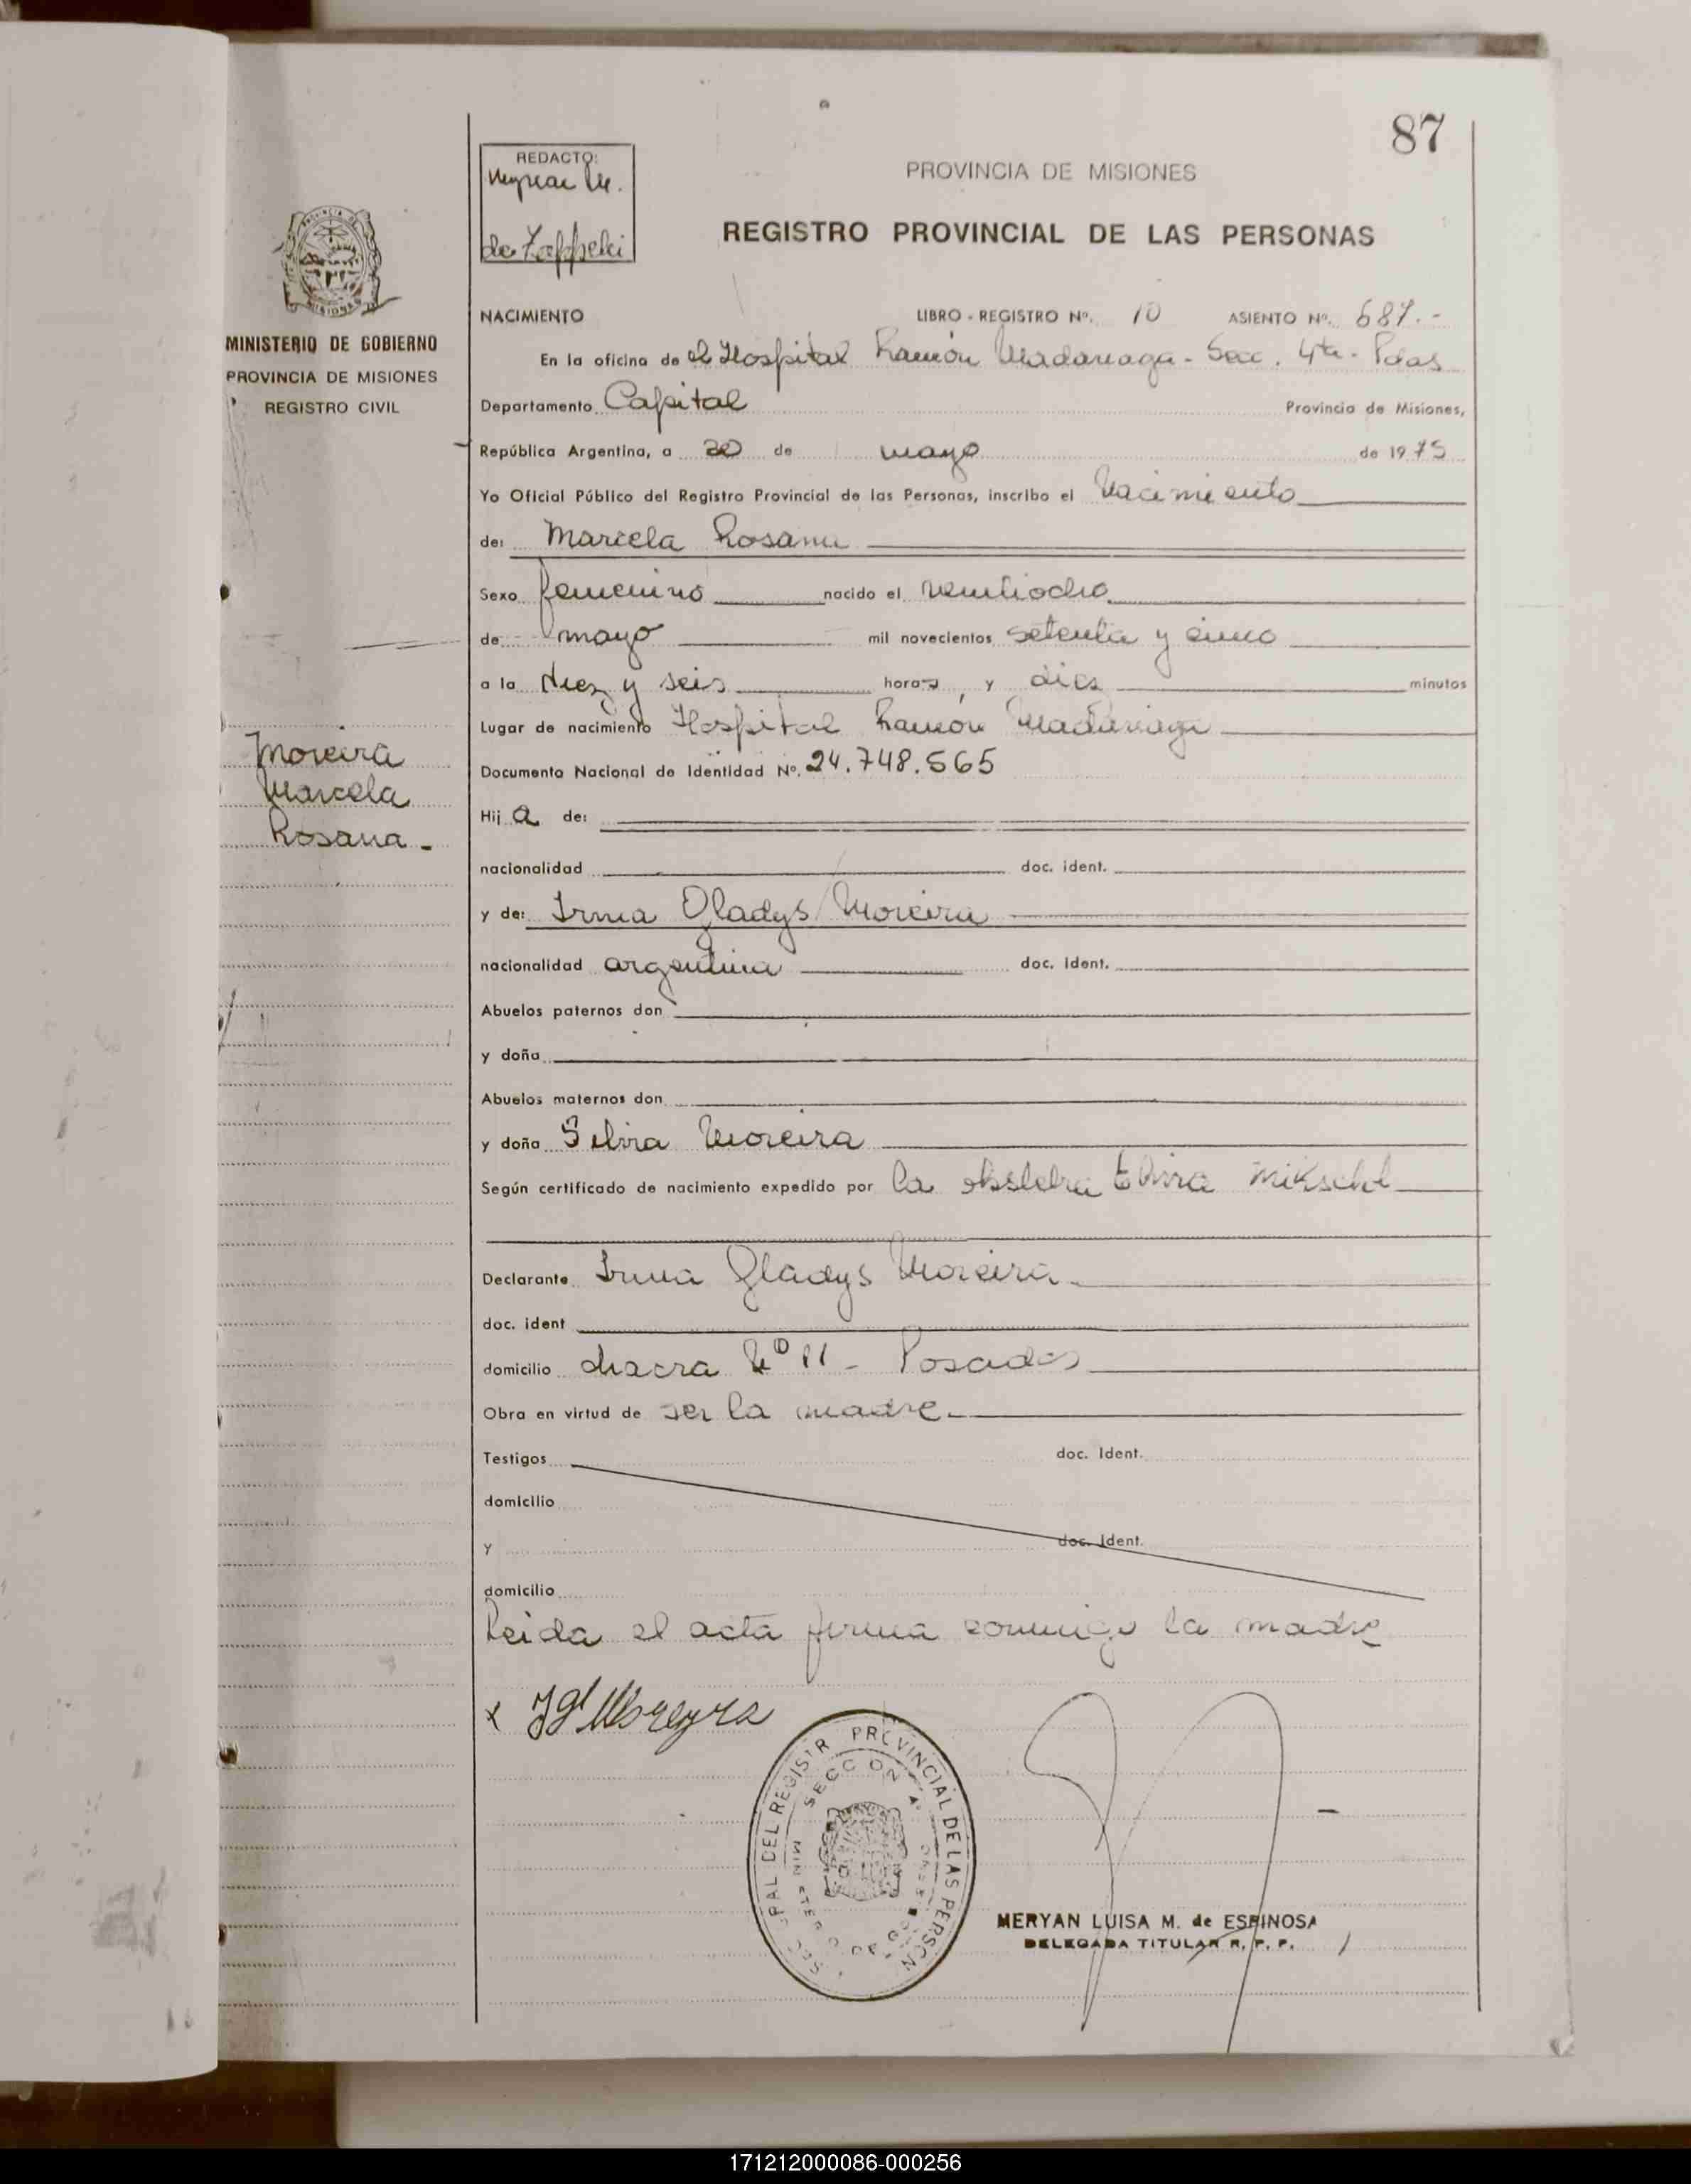 87
REDACTO:
de Zappelli
PROVINCIA DE MISIONES
REGISTRO PROVINCIAL DE LAS PERSONAS
MINISTERIO DE GOBIERNO
PROVINCIA DE MISIONES
REGISTRO CIVIL
NACIMIENTO LIBRO - REGISTRO Nº. 10 ASIENTO Nº. 687.-
En la oficina de el Hospital Ramón Madariaga - Secc. 4ta - Pdas
Departamento Capital Provincia de Misiones,
República Argentina, a 30 de mayo de 1975
Yo Oficial Público del Registro Provincial de las Personas, inscribo el Nacimiento
de: Marcela Rosana
Sexo femenino nacido el veintiocho
de mayo mil novecientos setenta y cinco
a la diez y seis horas, y diez minutos
Lugar de nacimiento Hospital Ramón Madariaga
Moreira
Marcela
Rosana -
Documento Nacional de Identidad Nº. 24.748.565
Hij a de:
nacionalidad doc. ident.
y de: Irma Gladys Moreira
nacionalidad argentina doc. ident.
Abuelos paternos don
y doña
Abuelos maternos don
y doña Silvia Moreira
Según certificado de nacimiento expedido por la obstetra Elvira
Declarante Irma Gladys Moreira
doc. ident
domicilio chacra Nº 11 - Posadas
Obra en virtud de ser la madre
Testigos doc. Ident.
domicilio
y doc. Ident.
domicilio
Leida el acta firma conmigo la madre
x Ig Moreyra
PROVINCIAL DE LAS PERSON
DEL REGISTR
SECCION
MERYAN LUISA M. de ESPINOSA
DELEGADA TITULAR R. P. P.
171212000086-000256